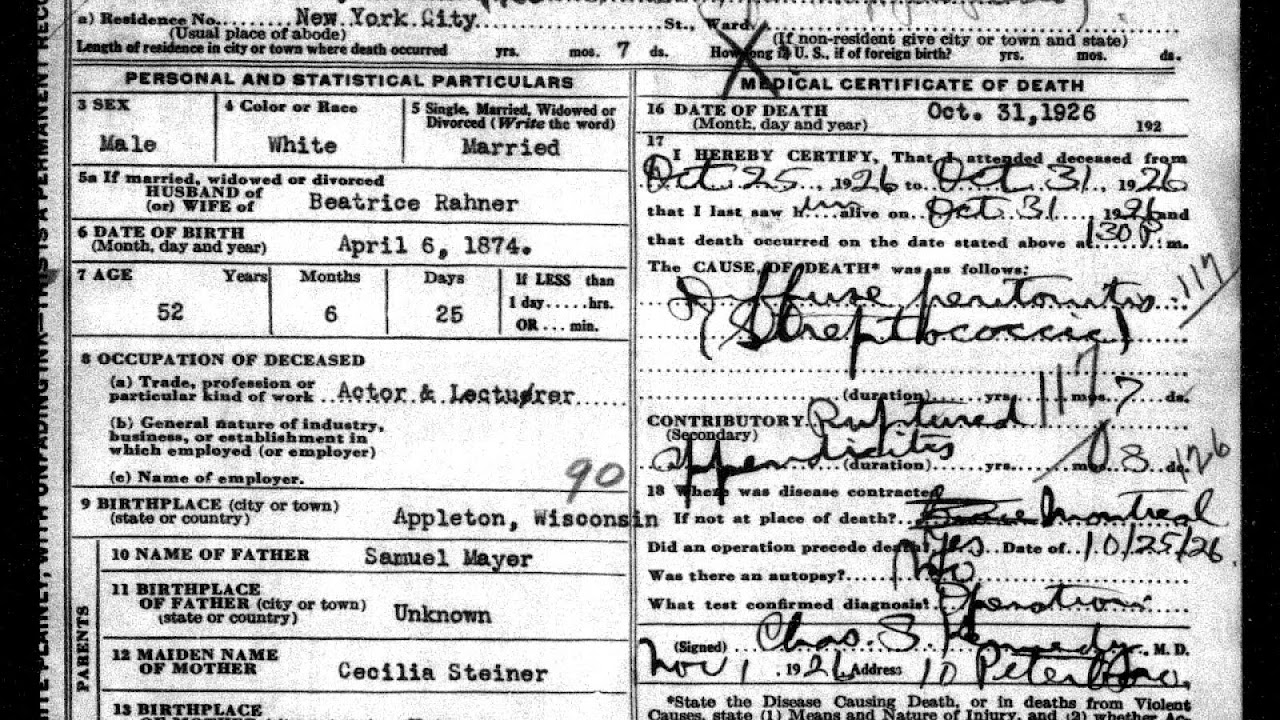 a) Residence No. New York City St., Ward.
(Usual place of abode) (If non-resident give city or town and state)
Length of residence in city or town where death occurred yrs. mos. 7 ds. How long in U. S., if of foreign birth? yrs. mos. ds.
PERSONAL AND STATISTICAL PARTICULARS
3 SEX
Male
4 Color or Race
White
5 Single, Married, Widowed or
Divorced (Write the word)
Married
5a If married, widowed or divorced
HUSBAND of
(or) WIFE of Beatrice Rahner
6 DATE OF BIRTH
(Month, day and year) April 6, 1874.
7 AGE Years Months Days If LESS than
1 day.....hrs.
52 6 25 OR ... min.
8 OCCUPATION OF DECEASED
(a) Trade, profession or
particular kind of work Actor & Lecturer
(b) General nature of industry,
business, or establishment in
which employed (or employer)
(c) Name of employer.
90
9 BIRTHPLACE (city or town)
(state or country) Appleton, Wisconsin
PARENTS
10 NAME OF FATHER Samuel Mayer
11 BIRTHPLACE
OF FATHER (city or town)
(state or country) Unknown
12 MAIDEN NAME
OF MOTHER Cecilia Steiner
13 BIRTHPLACE
MEDICAL CERTIFICATE OF DEATH
16 DATE OF DEATH Oct. 31,1926
(Month, day and year) 192
17
I HEREBY CERTIFY, That I attended deceased from
Oct 25, 1926 to Oct 31, 1926
that I last saw him alive on Oct 31, 1926 and
that death occurred on the date stated above at 130 P. m.
The CAUSE OF DEATH* was as follows:
Diffuse peritonitis 117
(Streptococcic)
117
(duration) yrs. mos. 7 ds.
CONTRIBUTORY Ruptured
(Secondary)
appendicitis (duration) yrs. mos. 8 ds. 126
18 Where was disease contracted
If not at place of death? Montreal
Did an operation precede death? Yes Date of 10/25/26.
Was there an autopsy? No
What test confirmed diagnosis? Operation
(Signed) Chas. S. Kennedy, M. D.
Nov 1, 1926 Address: 10 Peterboro.
*State the Disease Causing Death, or in deaths from Violent
Causes, state (1) Means and Nature of Injury, and (2) whether
WITE PLAINLY, WITH UNFADING INK—THIS IS A PERMANENT RECO